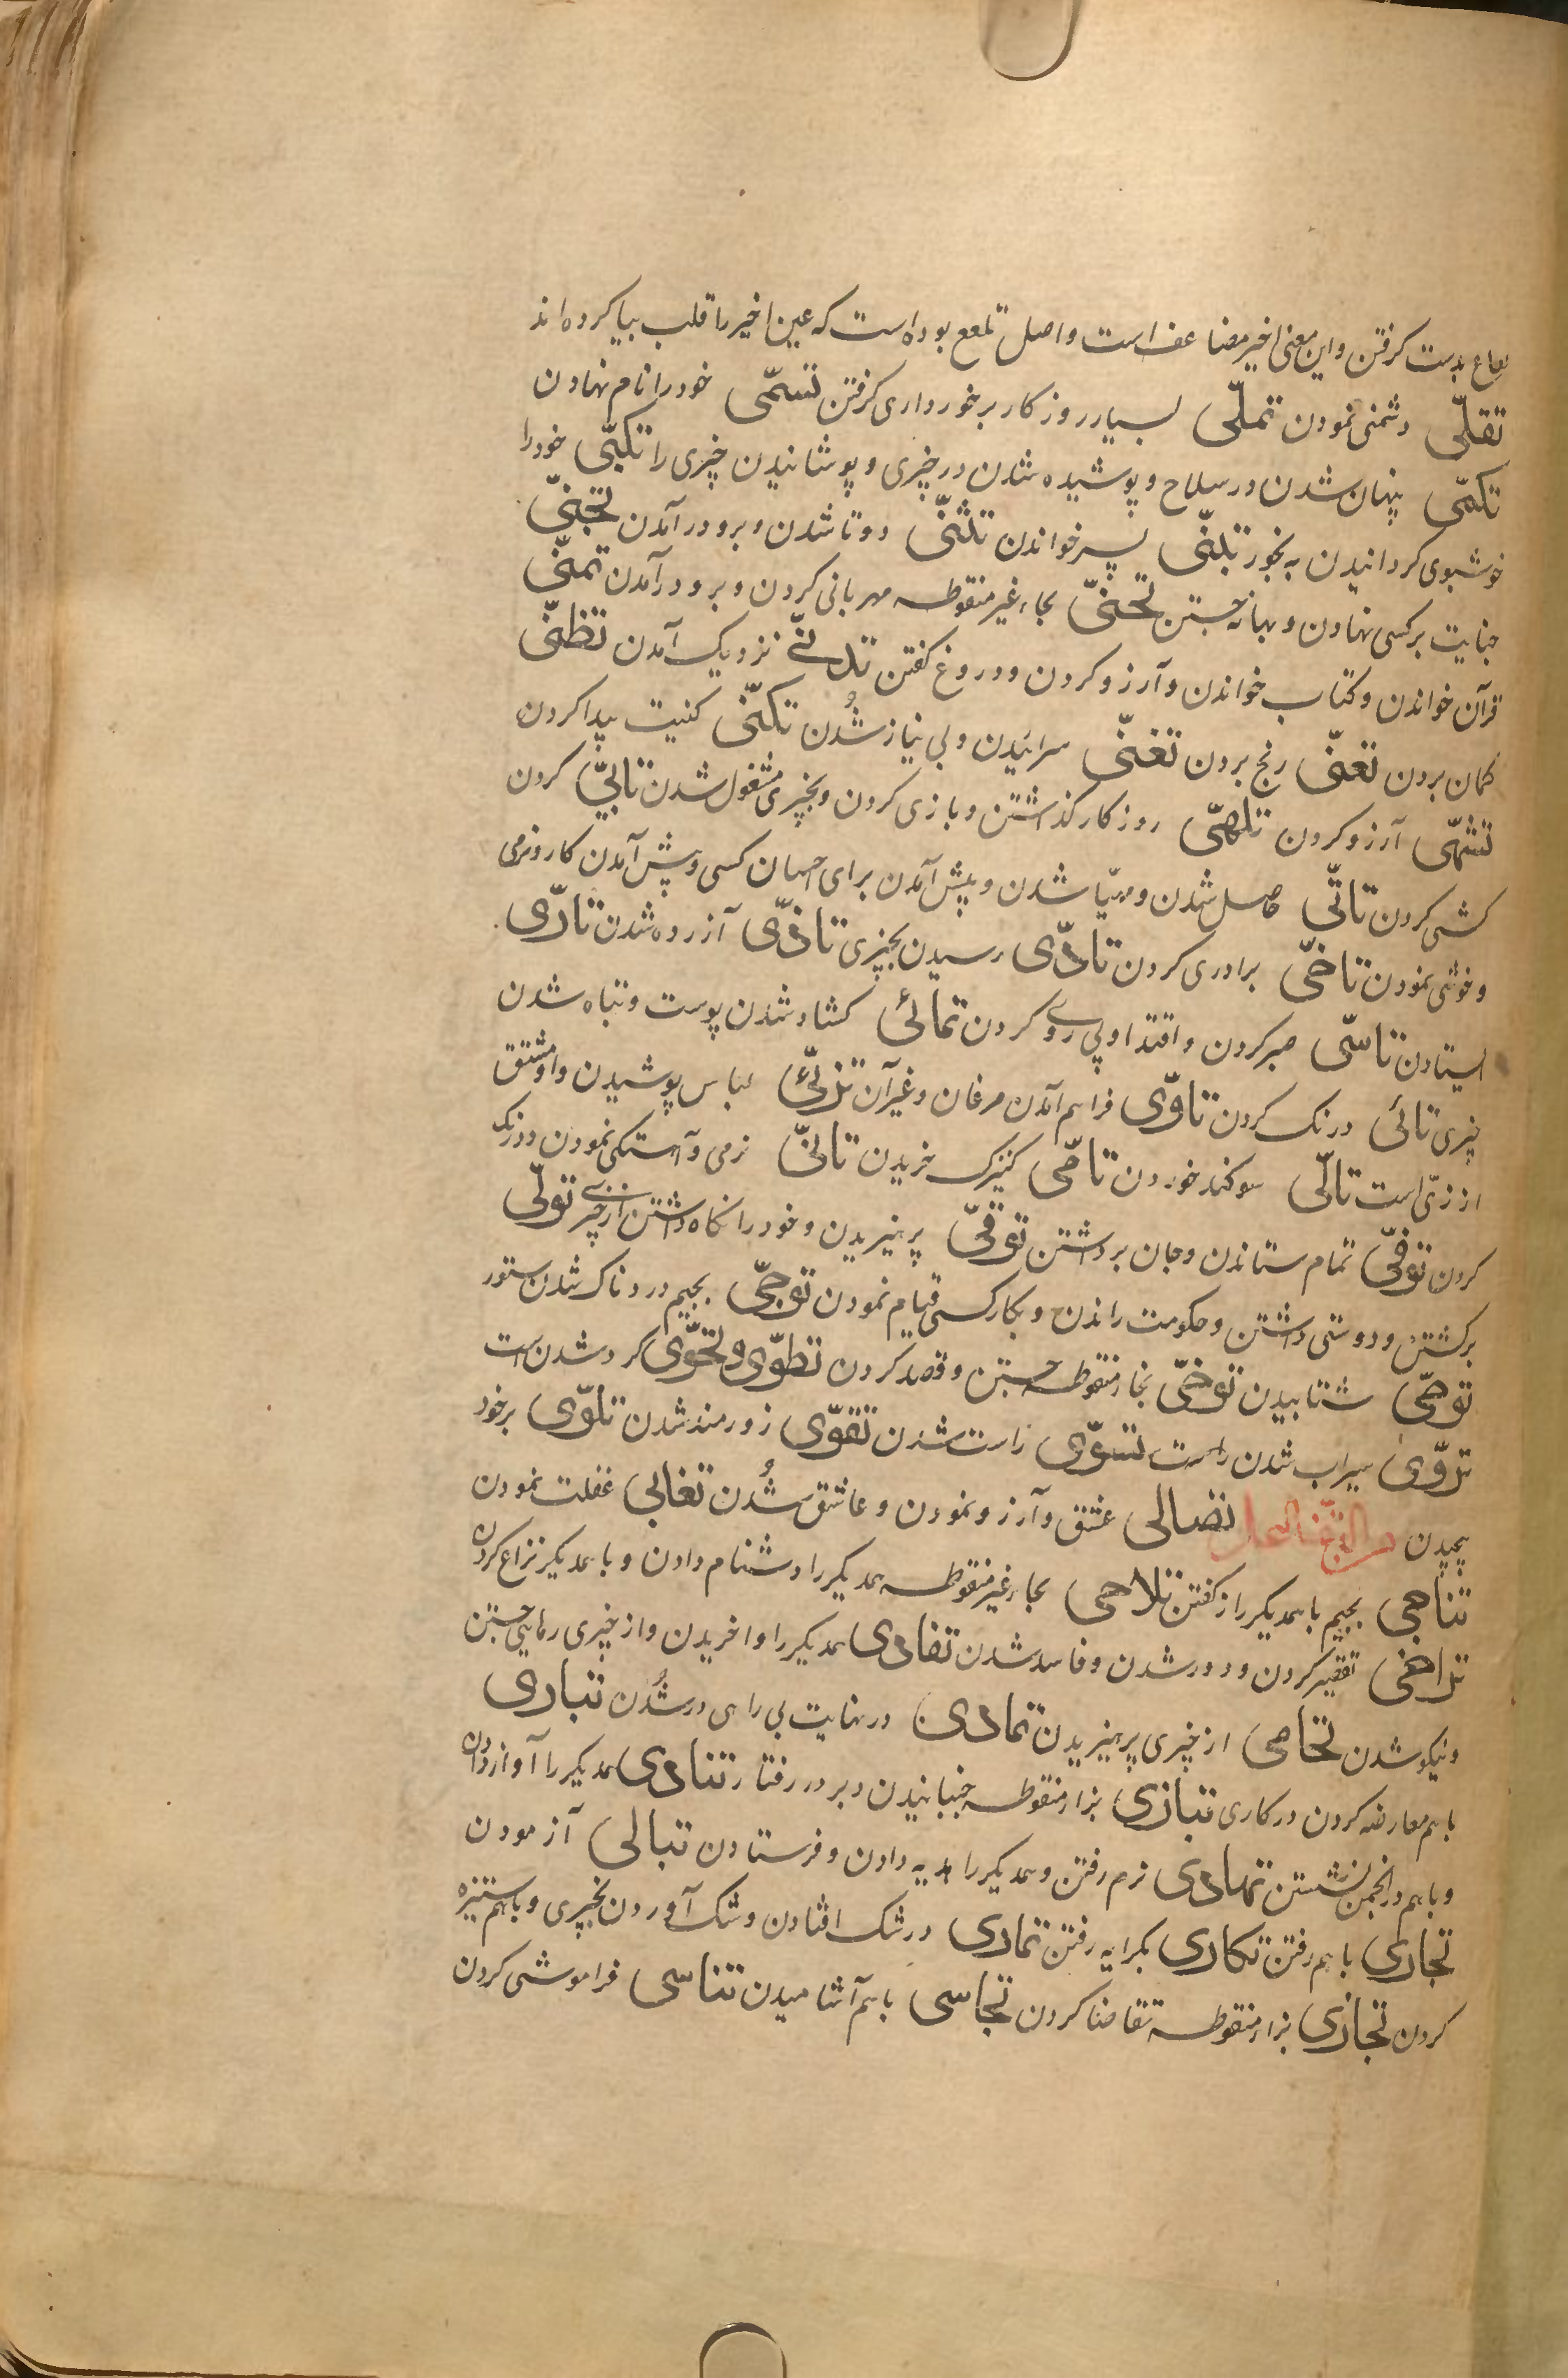 لعاع بدست کرفتن و این معنی اخیر مضاعف است و اصل تلعع بوده است که عین اخیر را قلب بیا کرده اند
تقلّی دشمنی نمودن تملّی بسیار روزکار برخورداری کرفتن تسمّی خود را نام نهادن
تکمّی پنهان شدن در سلاح و پوشیده شدن در چیزی و پوشانیدن چیزی را تکبّی خود را
خوشبوی کردانیدن به بخور تبنّی پسر خواندن تثنّی دوتا شدن و برو در آمدن تجنّی
جنایت بر کسی نهادن و بهانه جستن تحنّی بحاء غیر منقوطه مهربانی کردن و برو در آمدن تمنّی
قرآن خواندن و کتاب خواندن و آرزو کردن و دروغ کفتن تدنّے نزدیک آمدن تظنّی
کمان بردن تعنّی رنج بردن تغنّی سرائیدن و بی نیاز شُدن تکنّی کنیت پیدا کردن
تشهّی آرزو کردن تلهّی روزکار کذاشتن و بازی کردن و بچیزی مشغول شدن تابّی کردن
کشی کردن تاتّی حاصل شدن و مهیّا شدن و پیش آمدن برای احسان کسی و پیش آمدن کار و نرمی
و خوشی نمودن تاخّی برادری کردن تادّی رسیدن بچیزی تاذّی آزرده شدن تارّی
ایستادن تاسّی صبر کردن و اقتدا و پی روے کردن تمائی کشاد شدن پوست و تباه شدن
چیزی تائی درنک کردن تاوّی فراهم آمدن مرغان و غیر آن تزیّی لباس پوشیدن و او مشتق
از زیّ است تالّی سوکند خوردن تامّی کنیزک خریدن تانّی نرمی و آهستکی نمودن و درنک
کردن توفّی تمام ستاندن و جان برداشتن توقّی پرهیزیدن و خود را نکاه داشتن از چیزے تولّی
برکشتن و دوستی داشتن و حکومت راندن و بکار کسی قیام نمودن توجّی بجیم دردناک شدن ستور
توحّی شتابیدن توخّی بخاء منقوطه جستن و قصد کردن تطوّی و تحوّی کرد شدن است
تروّی سیراب شدن راست تسوّی راست شدن تقوّی زورمند شدن تلوّی بر خود
پیچیدن تصالی عشق و آرزو نمودن و عاشق شُدن تغابی غفلت نمودن
تناجی بجیم با همدیکر راز کفتن تلاحی بحاء غیر منقوطه همدیکر را دشنام دادن و با همدیکر نزاع کردن
تراخی تقصیر کردن و دور شدن و فاسد شدن تفادی همدیکر را وا خریدن و از چیزی رهایی جستن
و نیکو شدن تحامی از چیزی پرهیزیدن تمادی در نهایت بی راهی در شُدن تباری
با هم معارضه کردن در کاری تبازی بزاء منقوطه جنبانیدن و بر در رفتار تنادی همدیکر را آواز دادن
و باهم در انجمن نشستن تهادی نرم رفتن و همدیکر را هدیه دادن و فرستادن تبالی آزمودن
تجاری باهم رفتن تکاری بکرایه رفتن تماری در شک افتادن و شک آوردن بچیزی و باهم ستیزه
کردن تجازی بزاء منقوطه تقاضا کردن تحاسی باهم آشامیدن تناسی فراموشی کردن